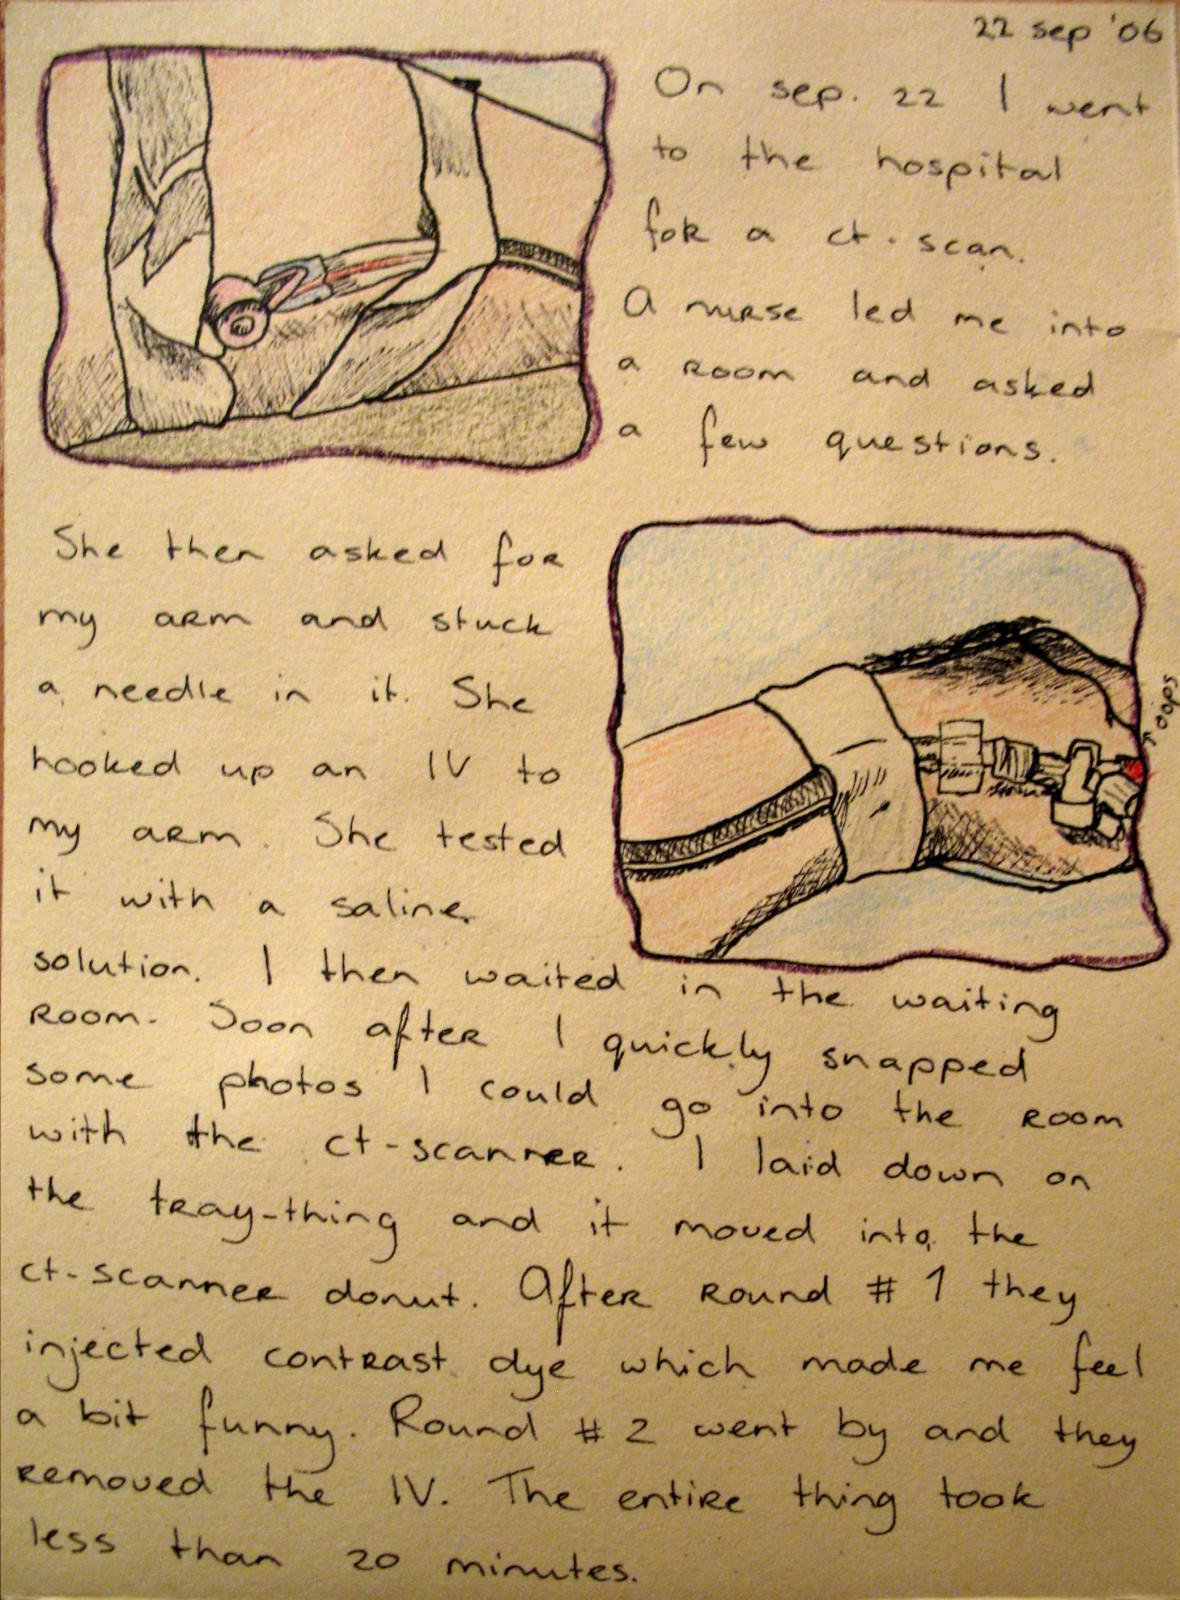 22 sep '06
On sep. 22 I went
to the hospital
for a ct-scan.
A nurse led me into
a room and asked
a few questions.
She then asked for
my arm and stuck
a needle in it. She
hooked up an IV to
my arm. She tested
it with a saline
oops
solution. I then waited in the waiting
room. Soon after I quickly snapped
some photos I could go into the room
with the ct-scanner. I laid down on
the tray-thing and it moved into the
ct-scanner donut. After round #1 they
injected contrast dye which made me feel
a bit funny. Round #2 went by and they
removed the IV. The entire thing took
less than 20 minutes.